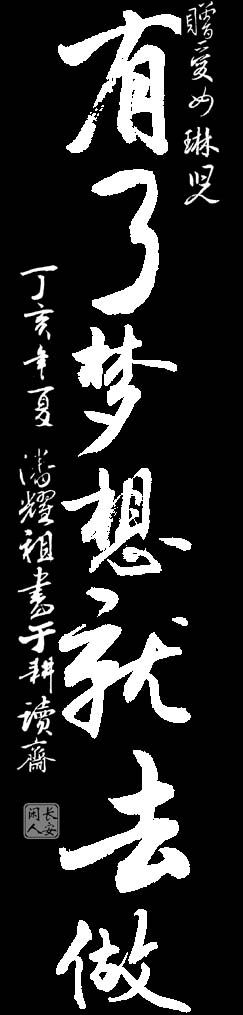 贈愛女琳児
有了梦想就去做
丁亥年夏 潘耀祖書于耕讀齋
長安
闲人